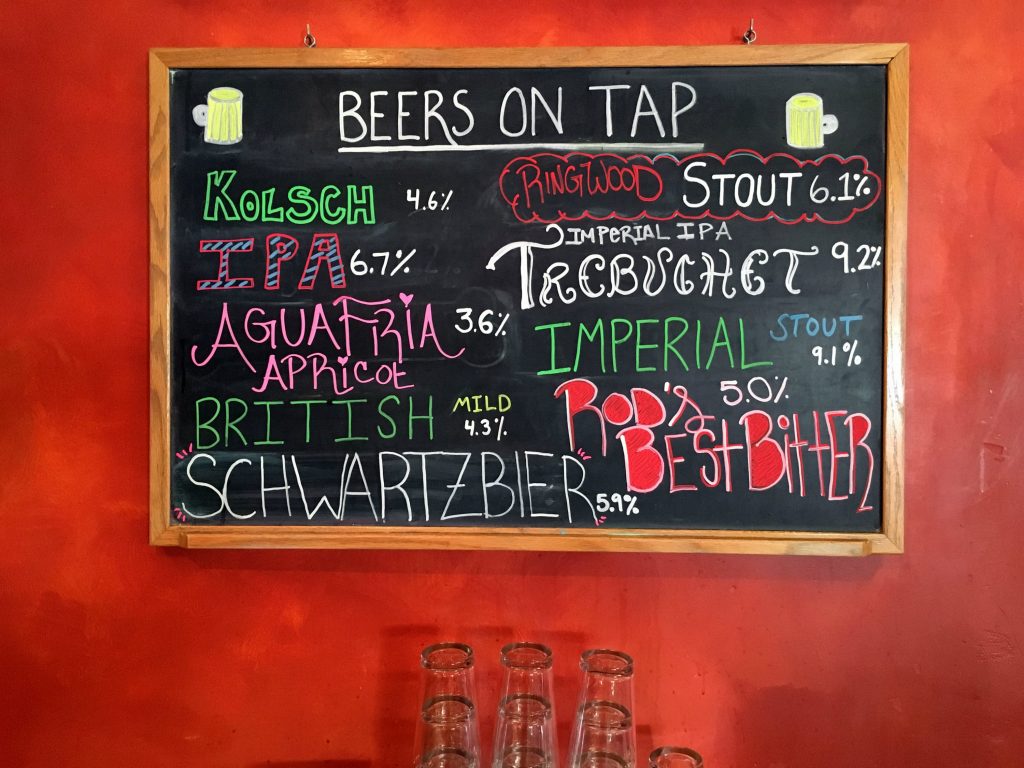 BEERS ON TAP
KOLSCH 4.6%
IPA 6.7%
AGUA FRIA 3.6%
APRICOT
BRITISH MILD
4.3%
SCHWARTZBIER 5.9%
RINGWOOD STOUT 6.1%
IMPERIAL IPA
TREBUCHET 9.2%
IMPERIAL STOUT
9.1%
ROD'S 5.0%
BEST BITTER